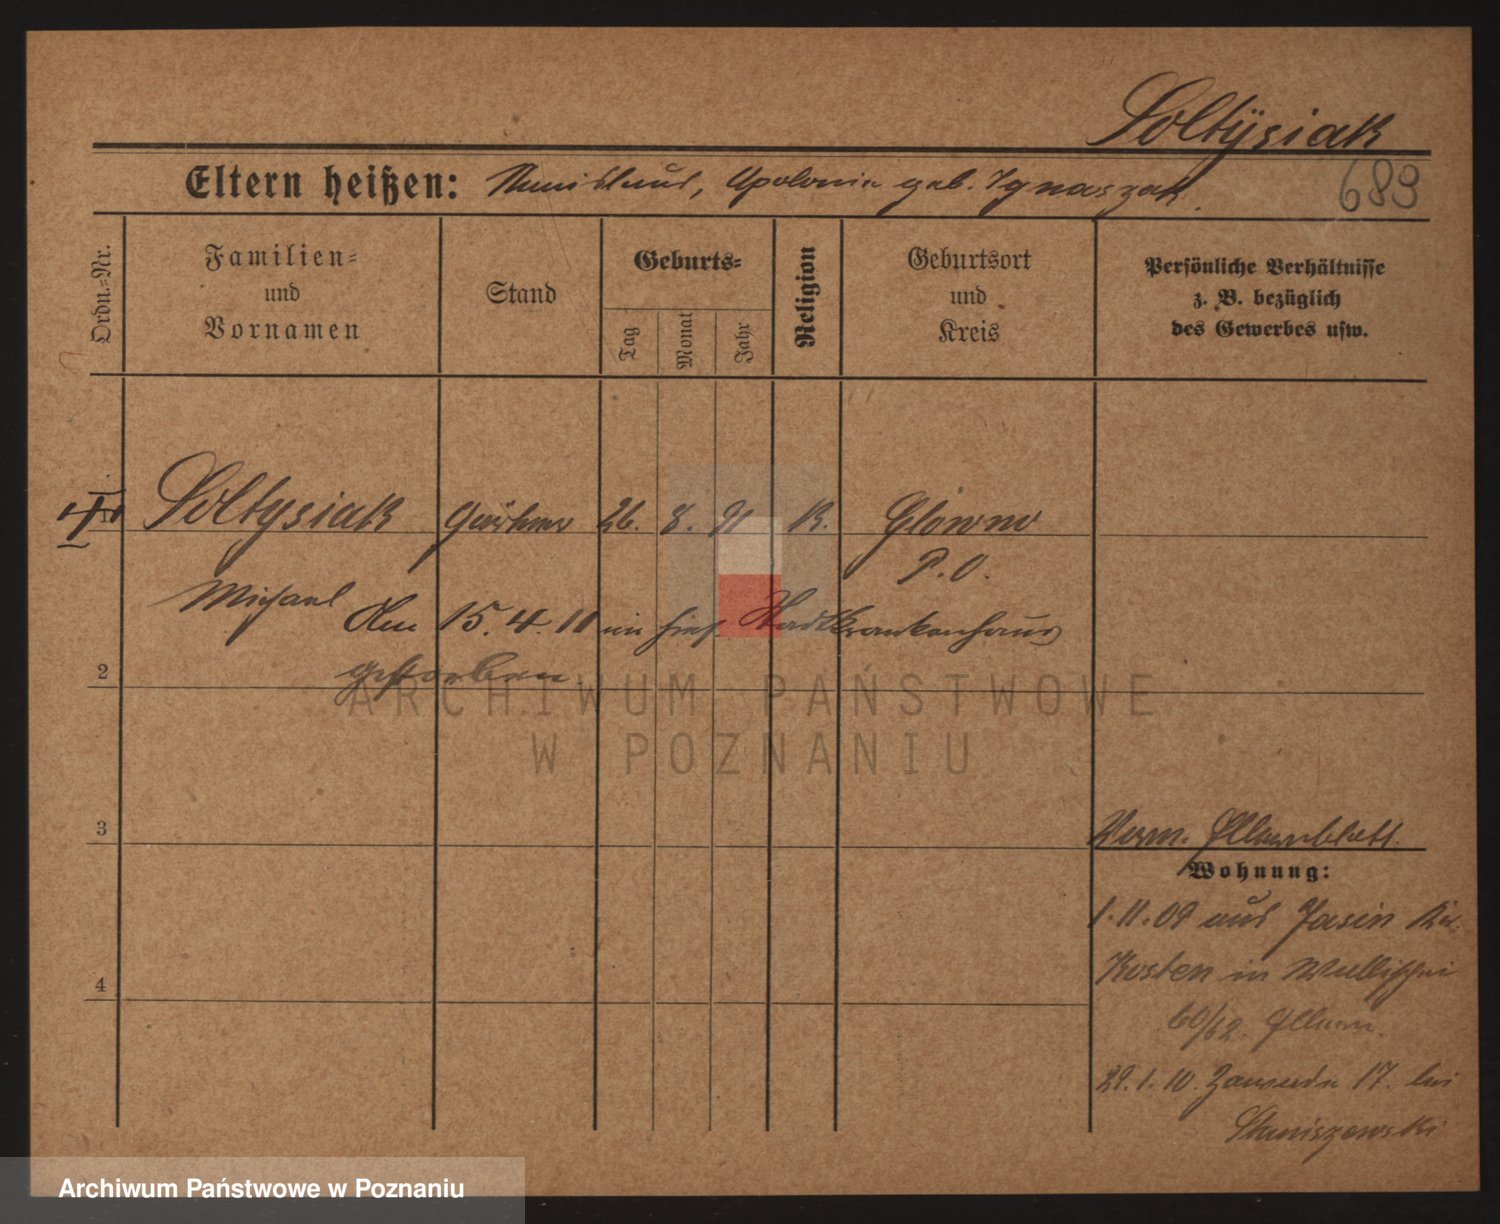 Soltysiak
Eltern heißen: Stanislaus, Apolonia geb. Ignaszak.
689
Ordn.-Nr.
Familien-
und
Vornamen
Stand
Geburts-
Tag
Monat
Jahr
Religion
Geburtsort
und
Kreis
Persönliche Verhältnisse
z. B. bezüglich
des Gewerbes usw.
Soltysiak Gärtner 26. 8. 91 K. Glowno
P.O.
Michael
Am 15.4.10 im hies. Stadtkrankenhaus
2
gestorben
3
Verm. Elternblatt
Wohnung:
1.11.09 aus Jasin Kr.
Kosten in Wallischei
4
60/62. Eltern.
29.1.10. Zawade 17. bei
Staniszewski
ARCHIWUM PAŃSTWOWE
W POZNANIU
Archiwum Państwowe w Poznaniu